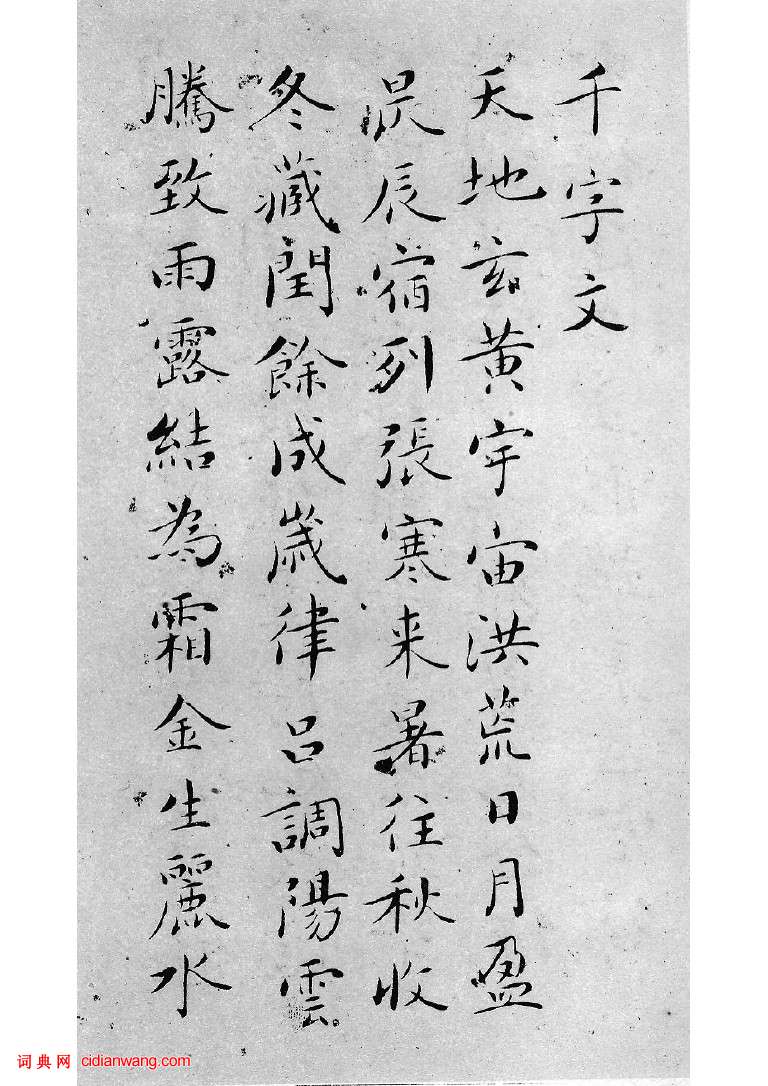 千字文
天地玄黃宇宙洪荒日月盈
昃辰宿列張寒来暑往秋收
冬藏閏餘成歲律呂調陽雲
騰致雨露結為霜金生麗水
词典网 cidianwang.com